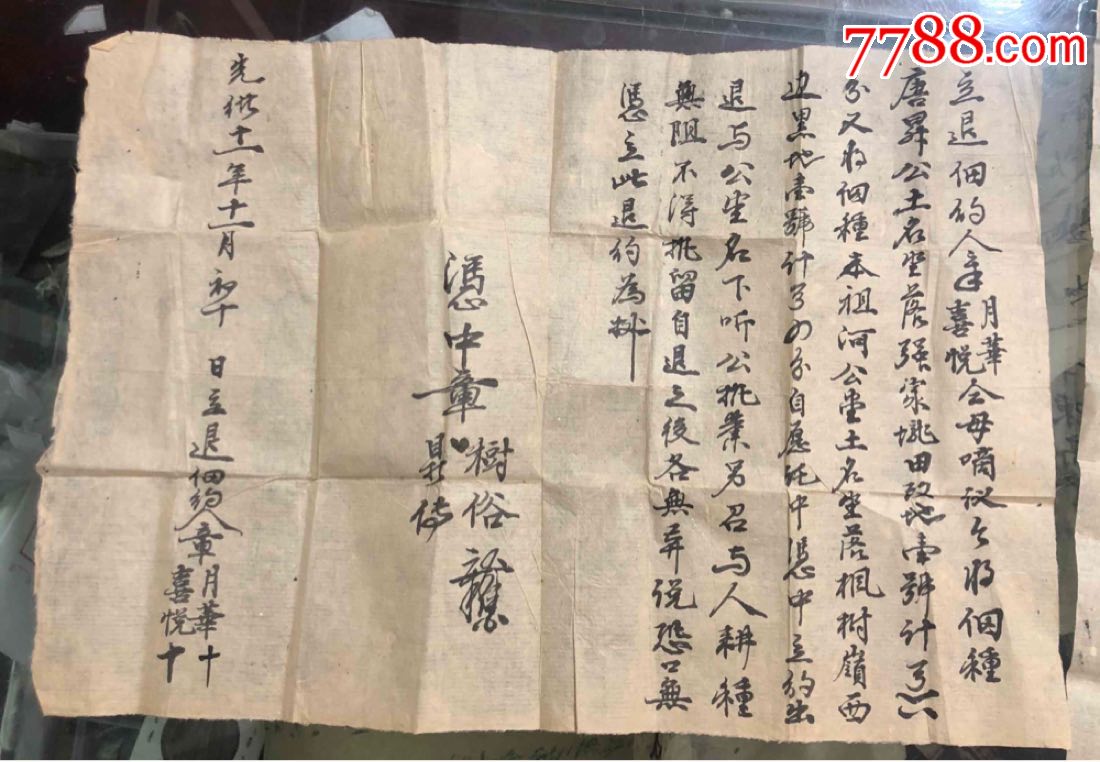 7788.com
立退佃約人章月華喜悅仝母嘀议今將佃種
唐昇公土名坐落强家垅田改地壹號計
分又將佃種本祖河公堂土名坐落楓树嶺西
边黑地壹號計 四分自愿托中憑中立約出
退与公堂名下听公執業另召与人耕種
無阻不得執留自退之後各無異说恐口無
憑立此退約為
憑中章樹俗
昇倚
光緒十一年十一月初十 日立退佃約人章月華十
喜悅十